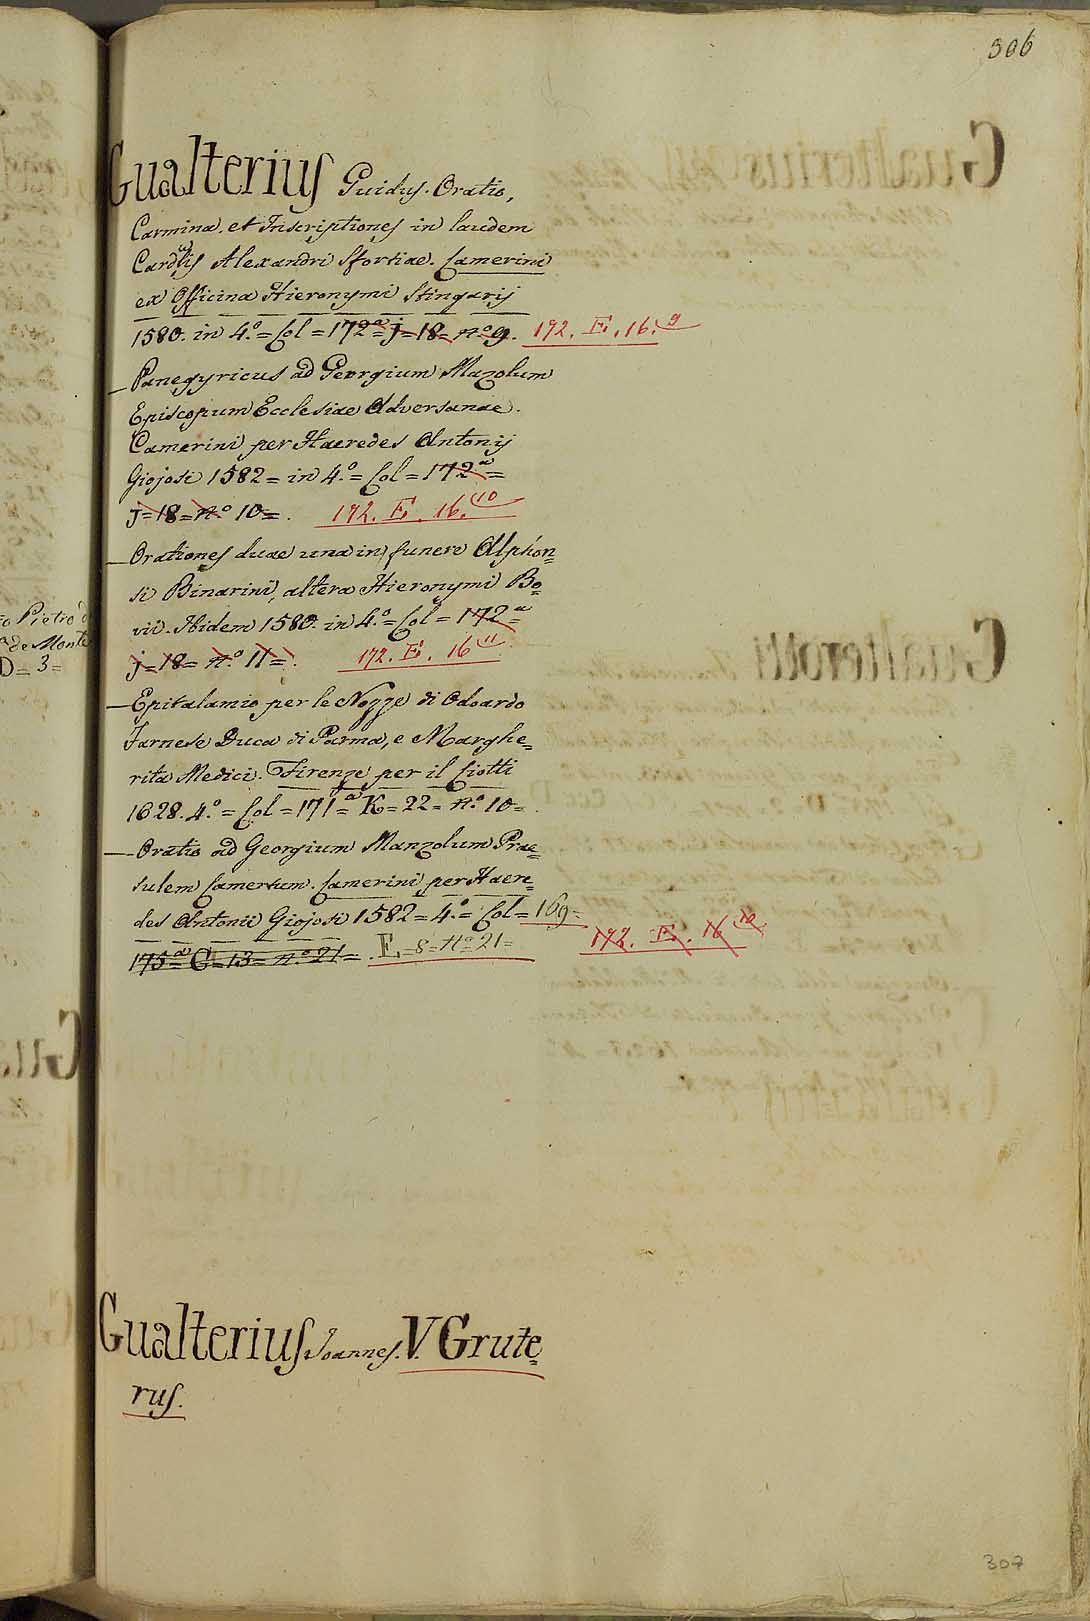 306
Gualterius Guidus. Oratio,
Carmina, et Inscriptiones in laudem
Cardlis Alexandri Sfortiae. Camerini
ex Officina Hieronymi Stingarij
1580. in 4.º = Col = 172ª j = 18 = nº 9. 172. E. 16. 9
— Panegyricus ad Georgium Mazolum
Episcopum Ecclesiae Adversanae.
Camerini per Haeredes Antonij
Giojosi 1582 = in 4.º = Col = 172ª =
j = 18 = n.º 10 = . 172. E. 16. 10
— Orationes duae una in funere Alphon=
si Binarini, altera Hieronymi Bo=
vii. Ibidem 1580. in 4.º = Col = 172ª =
j = 18 = n.º 11 = . 172. E. 16 11
— Epitalamio per le Nozze di Odoardo
Farnese Duca di Parma, e Marghe=
rita Medici. Firenze per il Ciotti
1628. 4.º = Col = 171ª = K = 22 = n.º 10 =
— Oratio ad Georgium Manzolum Prae=
sulem Camertum. Camerini per Haere=
des Antonii Giojosi 1582 = 4.º = Col = 169 =
175ª = C = 13 = n.º 21 = . E = 8 = nº 21 = 172. E. 16 10
Gualterius Joannes. V. Grute=
rus.
307
io Pietro
de Monte
D = 3 =